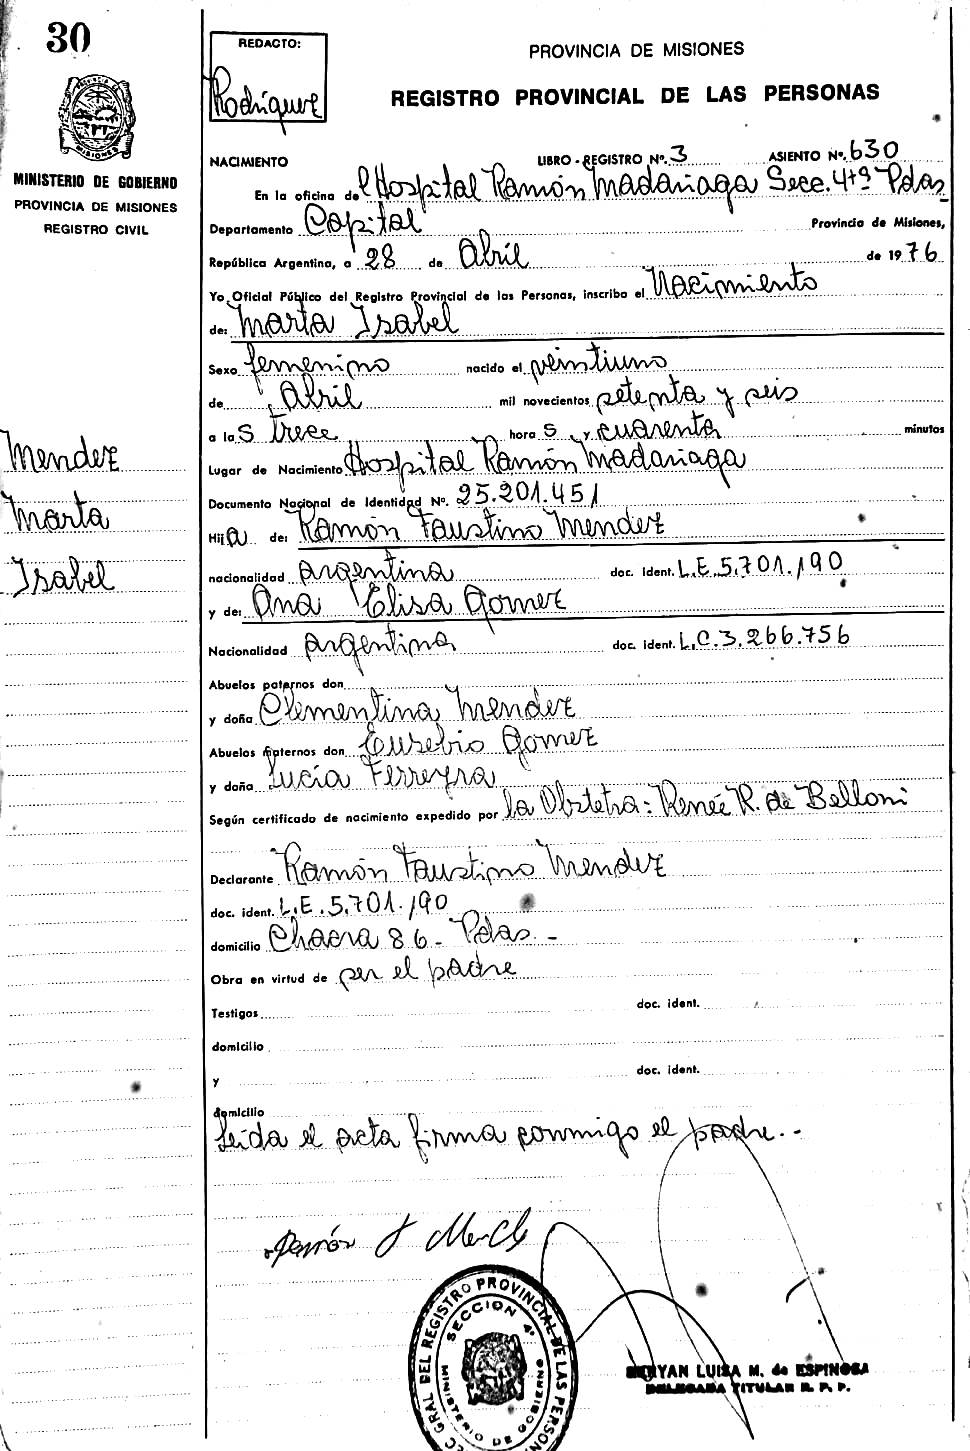 30
MINISTERIO DE GOBIERNO
PROVINCIA DE MISIONES
REGISTRO CIVIL
Mendez
Marta
Isabel
REDACTO:
Rodríguez
PROVINCIA DE MISIONES
REGISTRO PROVINCIAL DE LAS PERSONAS
NACIMIENTO LIBRO - REGISTRO Nº. 3 ASIENTO Nº. 630
En la oficina del Hospital Ramón Madariaga Secc. 4tª Pdas
Departamento Capital Provincia de Misiones,
República Argentina, a 28 de Abril de 1976
Yo Oficial Público del Registro Provincial de las Personas, inscribo el Nacimiento
de: Marta Isabel
Sexo femenino nacido el veintiuno
de Abril mil novecientos setenta y seis
a las trece horas y cuarenta minutos
Lugar de Nacimiento Hospital Ramón Madariaga
Documento Nacional de Identidad Nº. 25.201.451
Hija de: Ramón Faustino Mendez
nacionalidad argentina doc. ident. L.E. 5.701.190
y de: Ana Elisa Gomez
Nacionalidad argentina doc. ident. L.C. 3.266.756
Abuelos paternos don
y doña Clementina Mendez
Abuelos maternos don Eusebio Gomez
y doña Lucía Ferreyra
Según certificado de nacimiento expedido por la Obstetra: Renée R. de Belloni
Declarante Ramón Faustino Mendez
doc. ident. L.E. 5.701.190
domicilio Chacra 86 - Pdas -
Obra en virtud de ser el padre
Testigos doc. ident.
domicilio
y doc. ident.
domicilio
Leida el acta firma conmigo el padre.-
Ramón F Mendez
GRAL DEL REGISTRO PROVINCIAL DE LAS PERSONAS
SECCION 4ª
MINISTERIO DE GOBIERNO
MERYAN LUISA M. de ESPINOSA
DELEGADA TITULAR R. P. P.